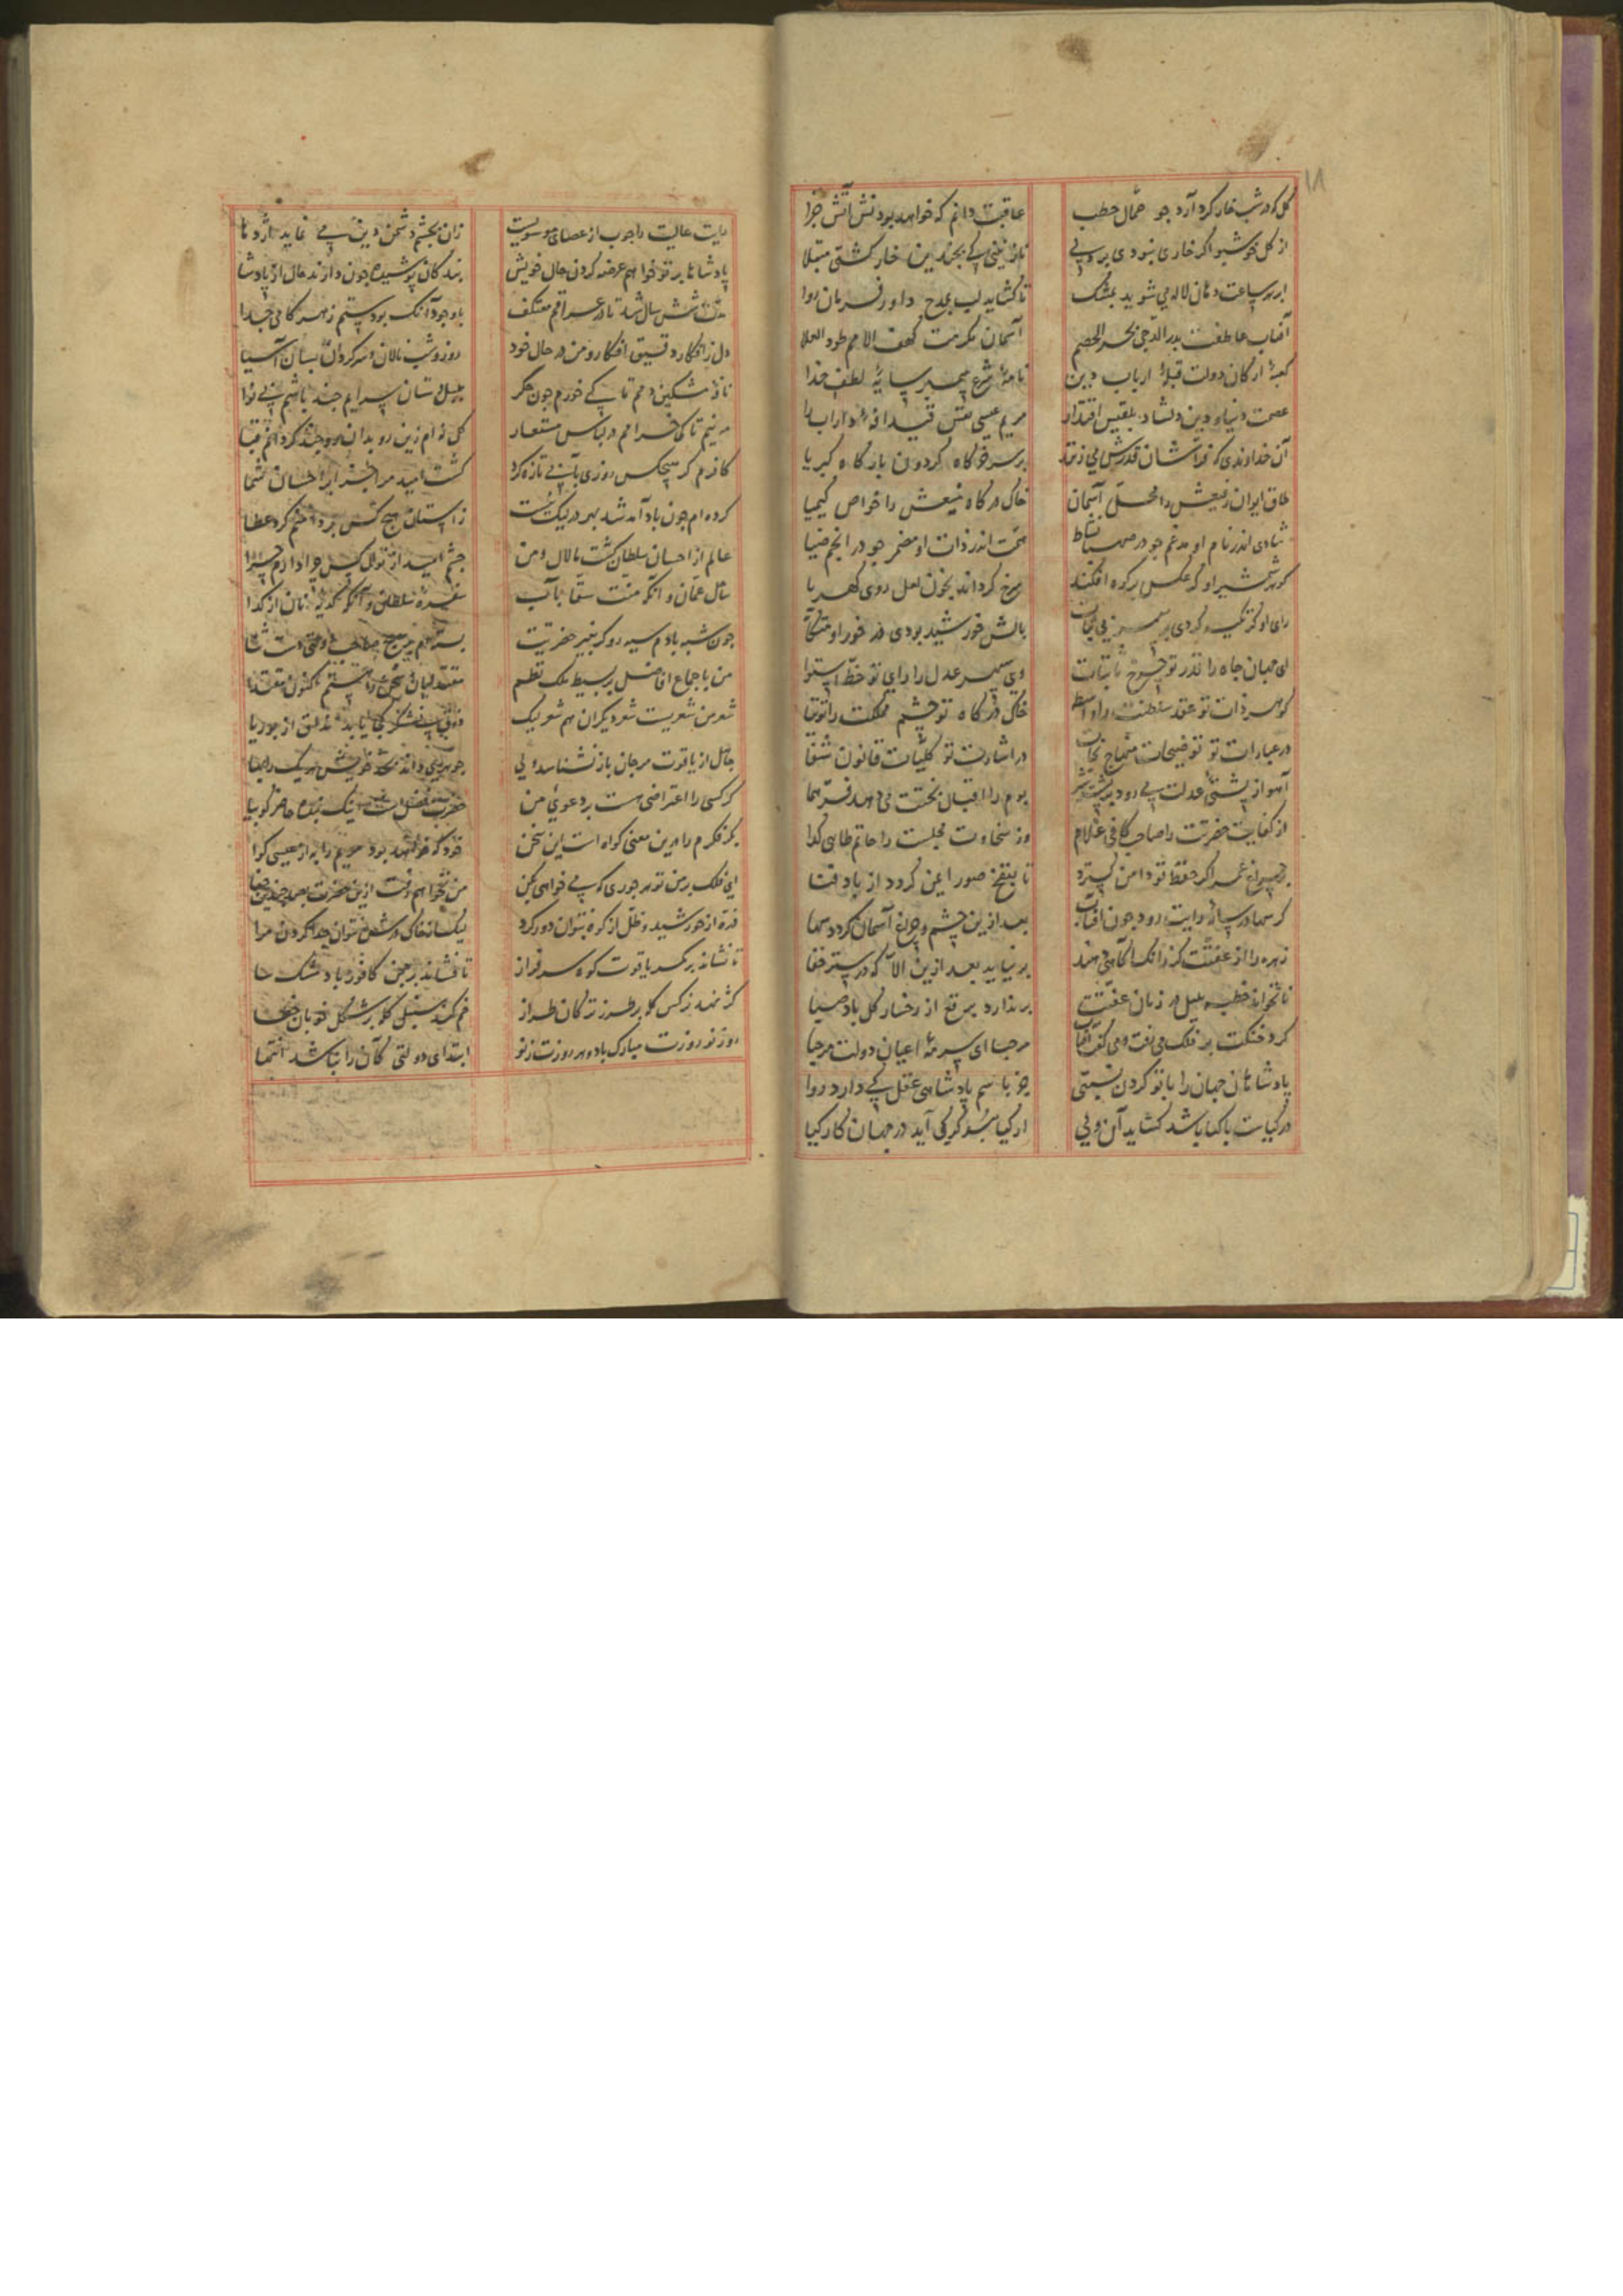 ۱۱
کل که در شب خار کرد آرد جو حمال حطب عاقبت دانم که خواهد بودنش آتش جزا
از کل خوشبو اکر خاری نبودی بر وپی نازنینی کی بچندین خار کشتی مبتلا
ابر هر ساعت دهان لاله می شوید بمشک تا کشاید لب بمدح داور فرمان روا
آفتاب عاطفت بدر الدجی بحر الخصم آسمان مکرمت کهف الامم طود العلا
کعبهٔ ارکان دولت قبلهٔ ارباب دین نامهٔ شرع پیمبر سایهٔ لطف خدا
عصمت دنیا و دین دلشاد بلقیس اقتدار مریم عیسی نفس قیدافهٔ داراب را
آن خداوندی که فراشان قدرش می زنند بر سر خرکاه کردون بارکاه کبریا
طاق ایوان رفیعش را محل آسمان خاک درکاه منیعش را خواص کیمیا
شادی اندر نام او مدغم جو در صهبا نشاط همت اندر ذات او مضمر جو در انجم ضیا
کوهر شمشیر او کر عکس بر کوه افکند سرخ کرداند بخون لعل روی کهربا
رای او کر تکیه کردی بر سریر بالش خورشید بودی در خور او متکا
ای جهان جاه را قدر تو جرخ با ثبات وی سپهر عدل را رای تو خط استوا
کوهر ذات تو عقد سلطنت را واسطه خاک درکاه تو چشم مملکت را توتیا
در عبارات تو توضیحات منهاج نجات در اشارات تو کلیات قانون شفا
آهو از پشتی عدلت پی رود بر پشت شیر بوم را اقبال بختت می دهد فر هما
از کفایت حضرتت را صاحب کافی غلام وز سخاوت مجلست را حاتم طایی کدا
بر جراغ عمر اکر حفظ تو دامن کسترد تا بنفخ صور ایمن کردد از باد فنا
کر سها در سایهٔ رایت رود جون آفتاب بعد ازین چشم و جراغ آسمان کردد سها
زهره را از عفتت کر زانک آکاهی دهند بر نیاید بعد ازین الا که در ستر خفا
تا نخواند خطبه بلبل در زمان عفتت بر ندارد برقع از رخسار کل باد صبا
کرد خنکت بر فلک می رفت و می کفت آفتاب مرحبا ای سرمهٔ اعیان دولت مرحبا
پادشاهان جهان را با تو کردن نسبتی جز باسم پادشاهی عقل کی دارد روا
در کیاست با کیا باشد کشاید آن ولی از کیا کی آید در جهان کار کیا
رایت عالیت را جوب از عصای موسویست زان بچشم دشمن دین می نماید اژدها
پادشاها بر تو خواهم عرضه کردن حال خویش بندکان پوشیده جون دارند حال از پادشا
مدت شش سال شد تا در عراقم معتکف باوجود آنک بودستم زهر کامی جدا
دل ز افکار دقیق افکار و من در حال خود روز و شب نالان و سرکردان بسان آسیا
نافهٔ مشکین دمم تا کی خورم خون جکر بلبل دستان سرایم جند باشم بی نوا
من نیم تا کی خرامم در لباس مستعار کل نه ام زین رو بدان رو جند کردانم قبا
کافرم کر هیچکس روزی بآبی تازه کرد کشت امید مرا جز ابر احسان شما
کرده ام جون باد آمد شد بهر در لیک ز استان هیچ کس بر داشتم کرد عطا
عالم از احسان سلطان کشت مالامال و من چشم امید از نوال کس چرا دارم چرا
ساحل عمان و آنکه منت سقا بآب سفرهٔ سلطان و آنکه کدیهٔ نان از کدا
جون شبه بادم سیه رو کر بغیر حضرتت بسته ام بر هیچ صاحب
من باجماع افاضل بر بسیط ملک نظم مقتدایان سخن را هستم اکنون مقتدا
شعر من شعریست شعر دیکران هم شعر لیک ذوق نیشکر کجا یابد مذاق از بوریا
جاهل از یاقوت مرجان باز نشناسد ولی جوهری داند بهای خویش هر یک را بها
کر کسی را اعتراضی هست بر دعوی من حضرت فضل است اینک بنده حاضر کو بیا
بکر فکرم را برین معنی کواه است این سخن خود که خواهد بود مریم را به از عیسی کوا
ای فلک بر من تو هر جوری که می خواهی بکن من نخواهم رفت ازین حضرت بصد جندین جفا
ذره از خورشید و ظل از کوه بتوان دور کرد لیک از خاک درش نتوان جدا کردن مرا
تا نشاند بر کمر یاقوت کوه سرفراز تا فشاند بر جمن کافور باد مشک سا
کژ نهد نرکس کله بر طرز ترکان طراز خم کند سنبل کله بر شکل خوبان ختا
روز نوروزت مبارک باد و هر روزت ز نو ابتدای دولتی کان را نباشد انتها